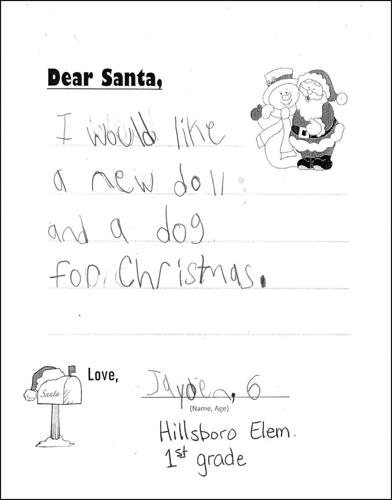 Dear Santa,
I would like
a new doll
and a dog
for Christmas.
Santa
Love,
Jayden, 6
(Name, Age)
Hillsboro Elem.
1st grade